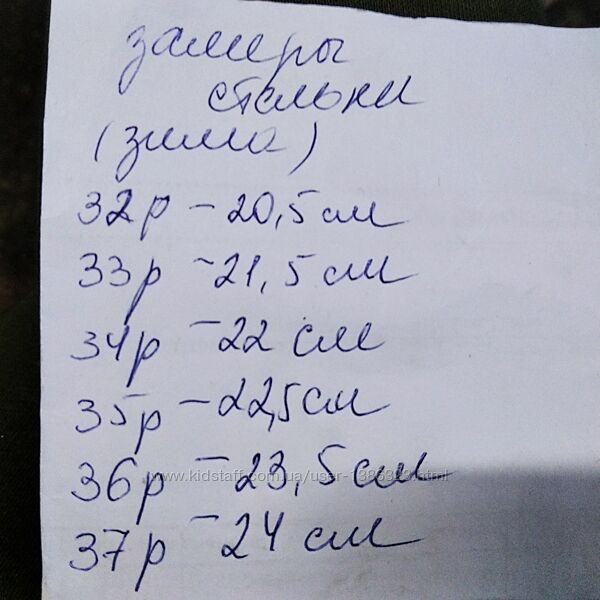 замеры
стельки
(зима)
32р - 20,5 см
33р - 21,5 см
34р - 22 см
35р - 22,5 см
36р - 23,5 см
www.kidstaff.com.ua/user-1386393.html
37р - 24 см